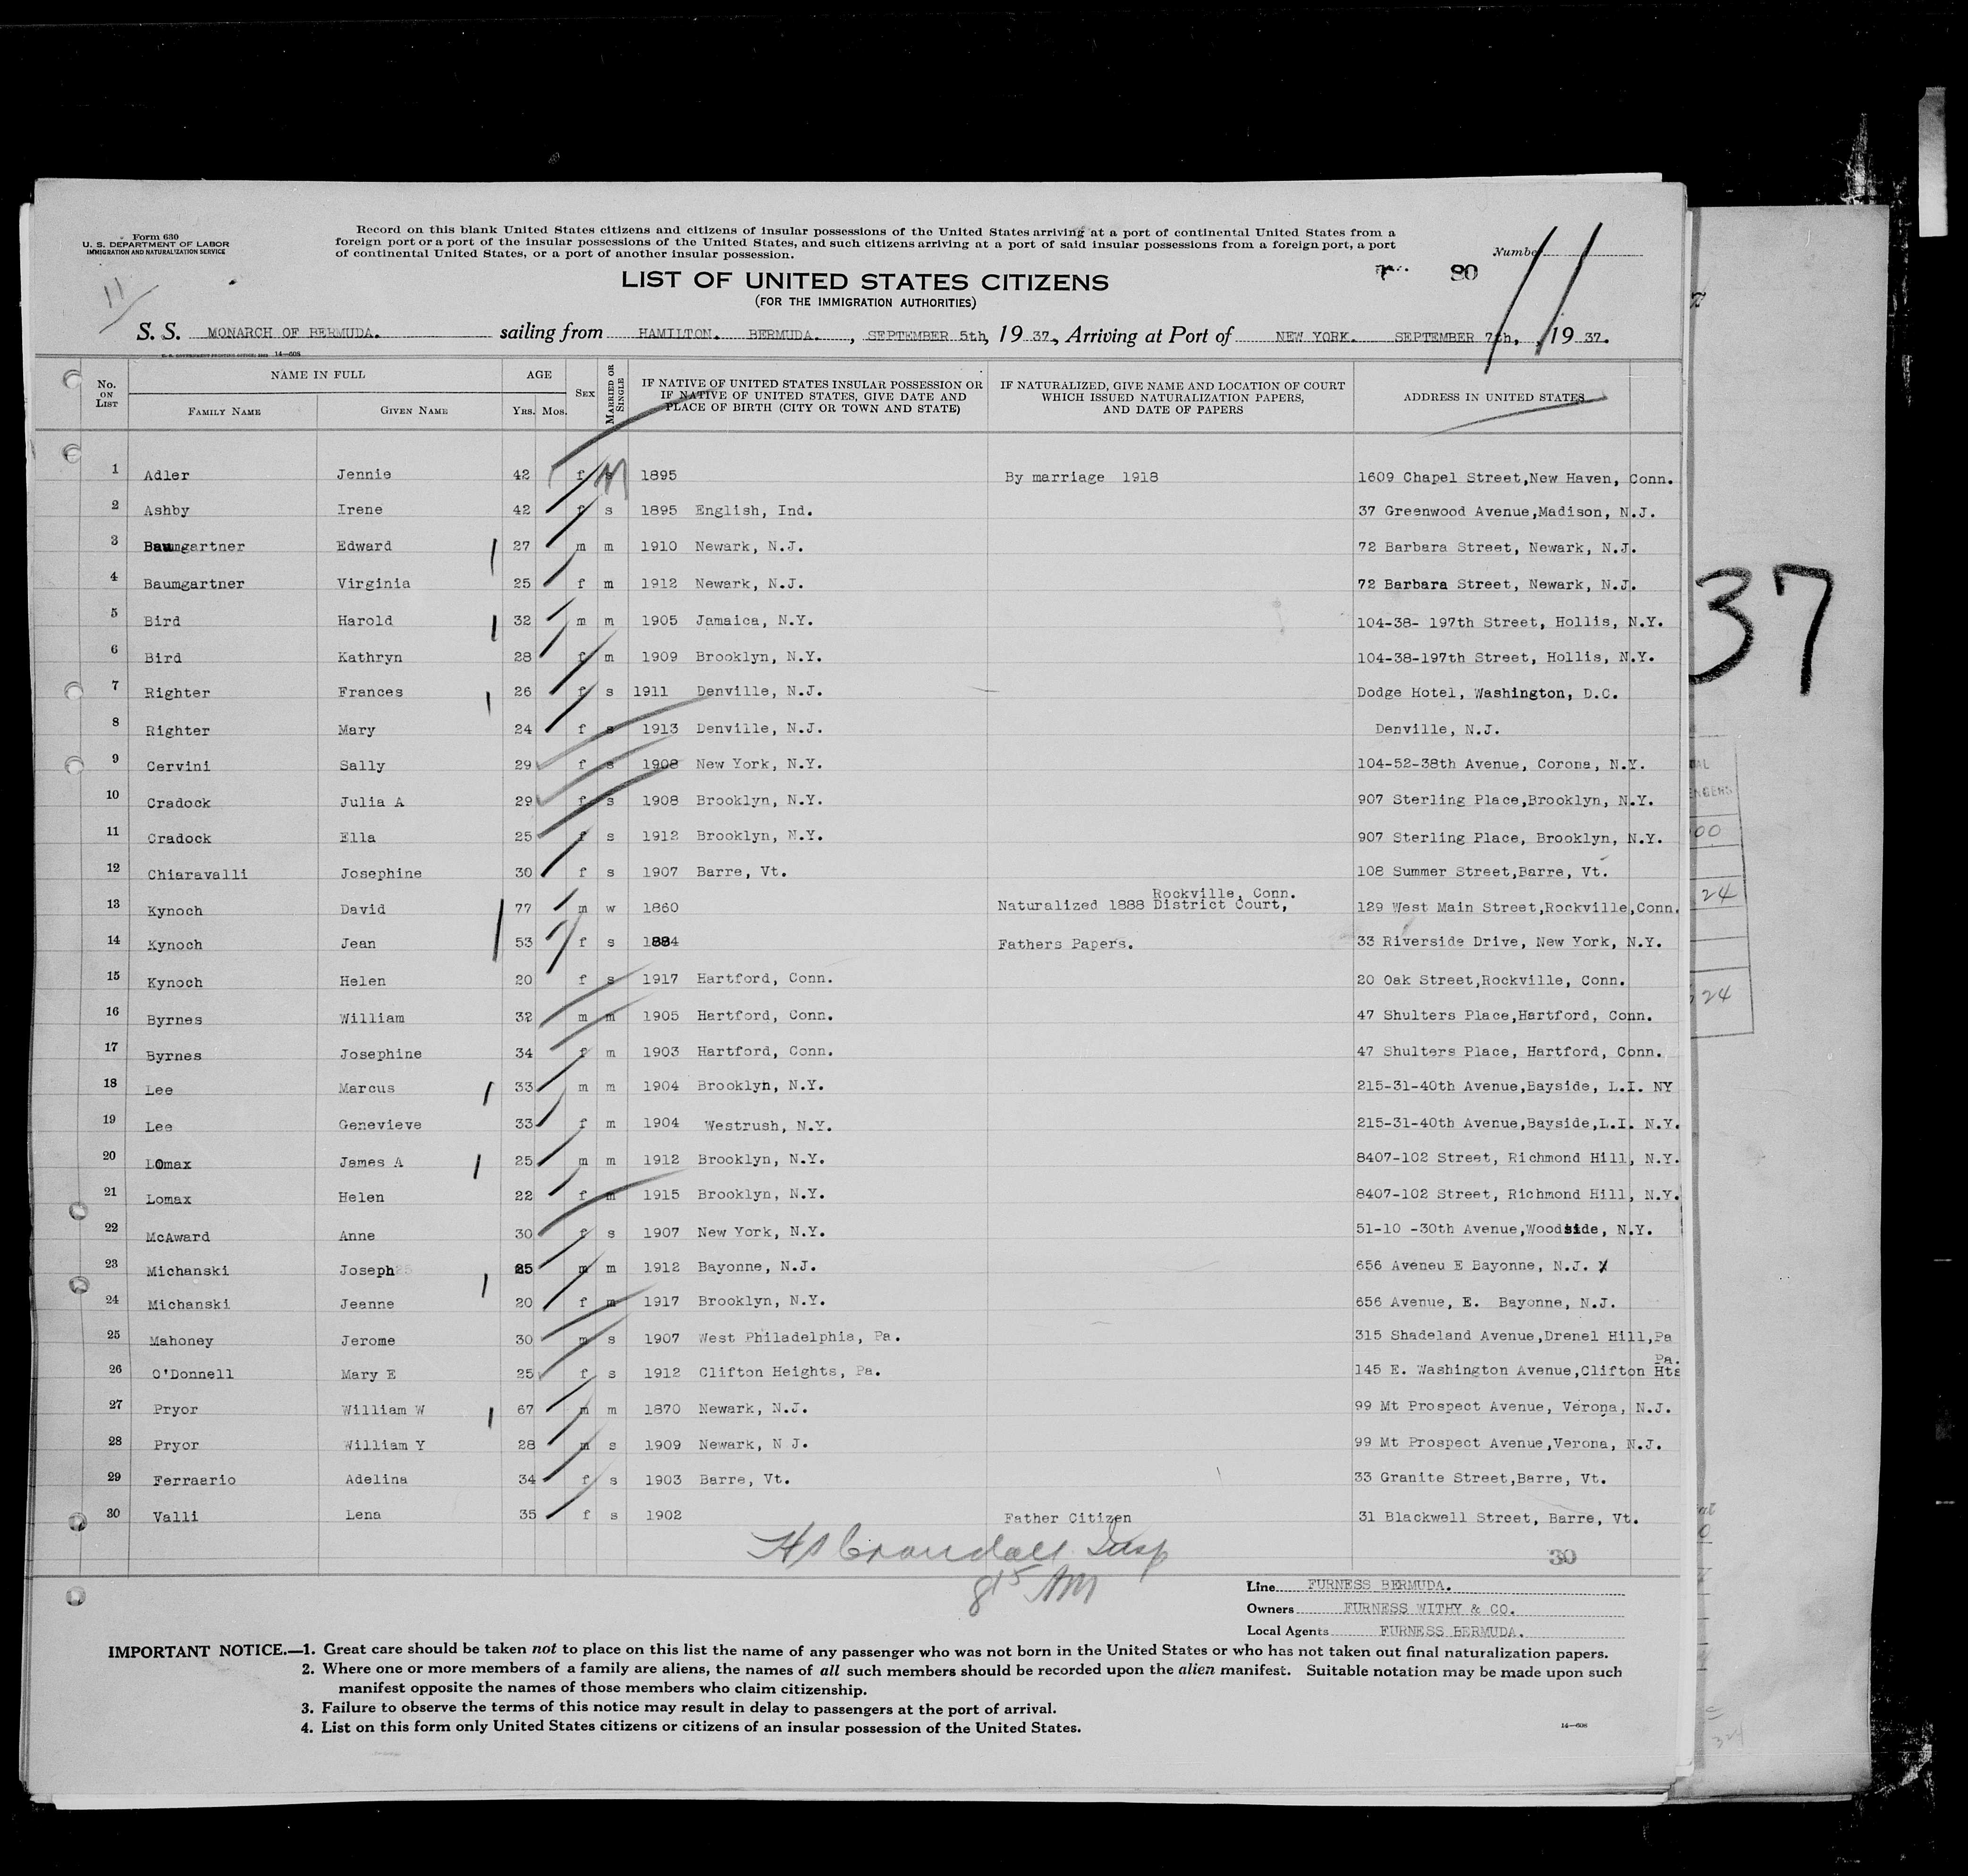 Form 630
U. S. DEPARTMENT OF LABOR
IMMIGRATION AND NATURALIZATION SERVICE
Record on this blank United States citizens and citizens of insular possessions of the United States arriving at a port of continental United States from a
foreign port or a port of the insular possessions of the United States, and such citizens arriving at a port of said insular possessions from a foreign port, a port
of continental United States, or a port of another insular possession.
Number 11
80
11
LIST OF UNITED STATES CITIZENS
(FOR THE IMMIGRATION AUTHORITIES)
S. S. MONARCH OF BERMUDA. sailing from HAMILTON. BERMUDA. , SEPTEMBER 5th, 19 37., Arriving at Port of NEW YORK. SEPTEMBER 7th, , 19 37.
14—608
No. ON LIST NAME IN FULL FAMILY NAME GIVEN NAME AGE YRS. MOS. SEX MARRIED OR SINGLE IF NATIVE OF UNITED STATES INSULAR POSSESSION OR IF NATIVE OF UNITED STATES, GIVE DATE AND PLACE OF BIRTH (CITY OR TOWN AND STATE) IF NATURALIZED, GIVE NAME AND LOCATION OF COURT WHICH ISSUED NATURALIZATION PAPERS, AND DATE OF PAPERS ADDRESS IN UNITED STATES
1 Adler Jennie 42 f s M 1895 By marriage 1918 1609 Chapel Street,New Haven, Conn.
2 Ashby Irene 42 f s 1895 English, Ind. 37 Greenwood Avenue,Madison, N.J.
3 Baumgartner Edward 27 m m 1910 Newark, N.J. 72 Barbara Street, Newark, N.J.
4 Baumgartner Virginia 25 f m 1912 Newark, N.J. 72 Barbara Street, Newark, N.J.
5 Bird Harold 32 m m 1905 Jamaica, N.Y. 104-38- 197th Street, Hollis, N.Y.
6 Bird Kathryn 28 f m 1909 Brooklyn, N.Y. 104-38-197th Street, Hollis, N.Y.
7 Righter Frances 26 f s 1911 Denville, N.J. Dodge Hotel, Washington, D.C.
8 Righter Mary 24 f s 1913 Denville, N.J. Denville, N.J.
9 Cervini Sally 29 f s 1908 New York, N.Y. 104-52-38th Avenue, Corona, N.Y.
10 Cradock Julia A 29 f s 1908 Brooklyn, N.Y. 907 Sterling Place,Brooklyn, N.Y.
11 Cradock Ella 25 f s 1912 Brooklyn, N.Y. 907 Sterling Place, Brooklyn, N.Y.
12 Chiaravalli Josephine 30 f s 1907 Barre, Vt. 108 Summer Street,Barre, Vt.
Rockville, Conn.
13 Kynoch David 77 m w 1860 Naturalized 1888 District Court, 129 West Main Street,Rockville,Conn.
14 Kynoch Jean 53 f s 1884 Fathers Papers. 33 Riverside Drive, New York, N.Y.
15 Kynoch Helen 20 f s 1917 Hartford, Conn. 20 Oak Street,Rockville, Conn.
16 Byrnes William 32 m m 1905 Hartford, Conn. 47 Shulters Place,Hartford, Conn.
17 Byrnes Josephine 34 f m 1903 Hartford, Conn. 47 Shulters Place, Hartford, Conn.
18 Lee Marcus 33 m m 1904 Brooklyn, N.Y. 215-31-40th Avenue,Bayside, L.I. NY
19 Lee Genevieve 33 f m 1904 Westrush, N.Y. 215-31-40th Avenue,Bayside,L.I. N.Y.
20 LOmax James A 25 m m 1912 Brooklyn, N.Y. 8407-102 Street, Richmond Hill, N.Y.
21 Lomax Helen 22 f m 1915 Brooklyn, N.Y. 8407-102 Street, Richmond Hill, N.Y.
22 McAward Anne 30 f s 1907 New York, N.Y. 51-10 -30th Avenue,Woodside, N.Y.
23 Michanski Joseph 25 m m 1912 Bayonne, N.J. 656 Aveneu E Bayonne, N.J.
24 Michanski Jeanne 20 f m 1917 Brooklyn, N.Y. 656 Avenue, E. Bayonne, N.J.
25 Mahoney Jerome 30 m s 1907 West Philadelphia, Pa. 315 Shadeland Avenue,Drenel Hill,Pa
Pa.
26 O'Donnell Mary E 25 f s 1912 Clifton Heights, Pa. 145 E. Washington Avenue,Clifton Hts
27 Pryor William W 67 m m 1870 Newark, N.J. 99 Mt Prospect Avenue, Verona, N.J.
28 Pryor William Y 28 m s 1909 Newark, N J. 99 Mt Prospect Avenue,Verona, N.J.
29 Ferraario Adelina 34 f s 1903 Barre, Vt. 33 Granite Street,Barre, Vt.
30 Valli Lena 35 f s 1902 Father Citizen 31 Blackwell Street, Barre, Vt.
H S Crandall Insp
30
8 15 AM
Line FURNESS BERMUDA.
Owners FURNESS WITHY & CO.
Local Agents FURNESS BERMUDA.
IMPORTANT NOTICE.—1. Great care should be taken not to place on this list the name of any passenger who was not born in the United States or who has not taken out final naturalization papers.
2. Where one or more members of a family are aliens, the names of all such members should be recorded upon the alien manifest. Suitable notation may be made upon such
manifest opposite the names of those members who claim citizenship.
3. Failure to observe the terms of this notice may result in delay to passengers at the port of arrival.
4. List on this form only United States citizens or citizens of an insular possession of the United States.
14—608
37
00
24
24